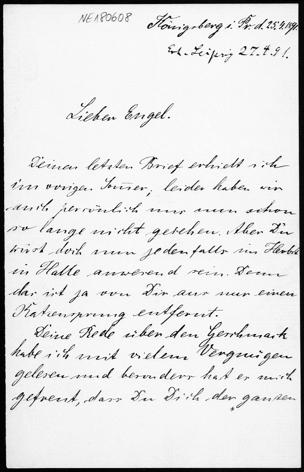 NE180608
Königsberg i. Pr. d. 25.4.1891.
Erh. Leipzig 27.4.91.
Lieber Engel.
Deinen letzten Brief erhielt ich
im vorigen Sommer; leider haben wir
auch persönlich uns nun schon
so lange nicht gesehen. Aber Du
wirst doch nun jedenfalls im Herbst
in Halle anwesend sein. Denn
das ist ja von Dir aus nur einen
Katzensprung entfernt.
Deine Rede über den Geschmack
habe ich mit vielem Vergnügen
gelesen und besonders hat es mich
gefreut, dass Du Dich der "ganzen